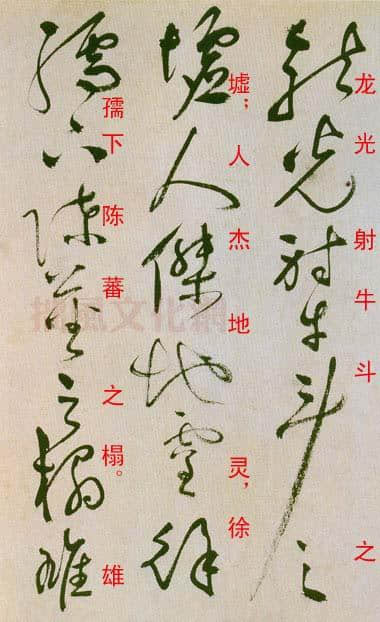 龙光射牛斗之
龍光射牛斗之
墟；人杰地灵，徐
墟人傑地靈徐
孺下陈蕃之榻。雄
孺下陳蕃之榻雄
風文化網